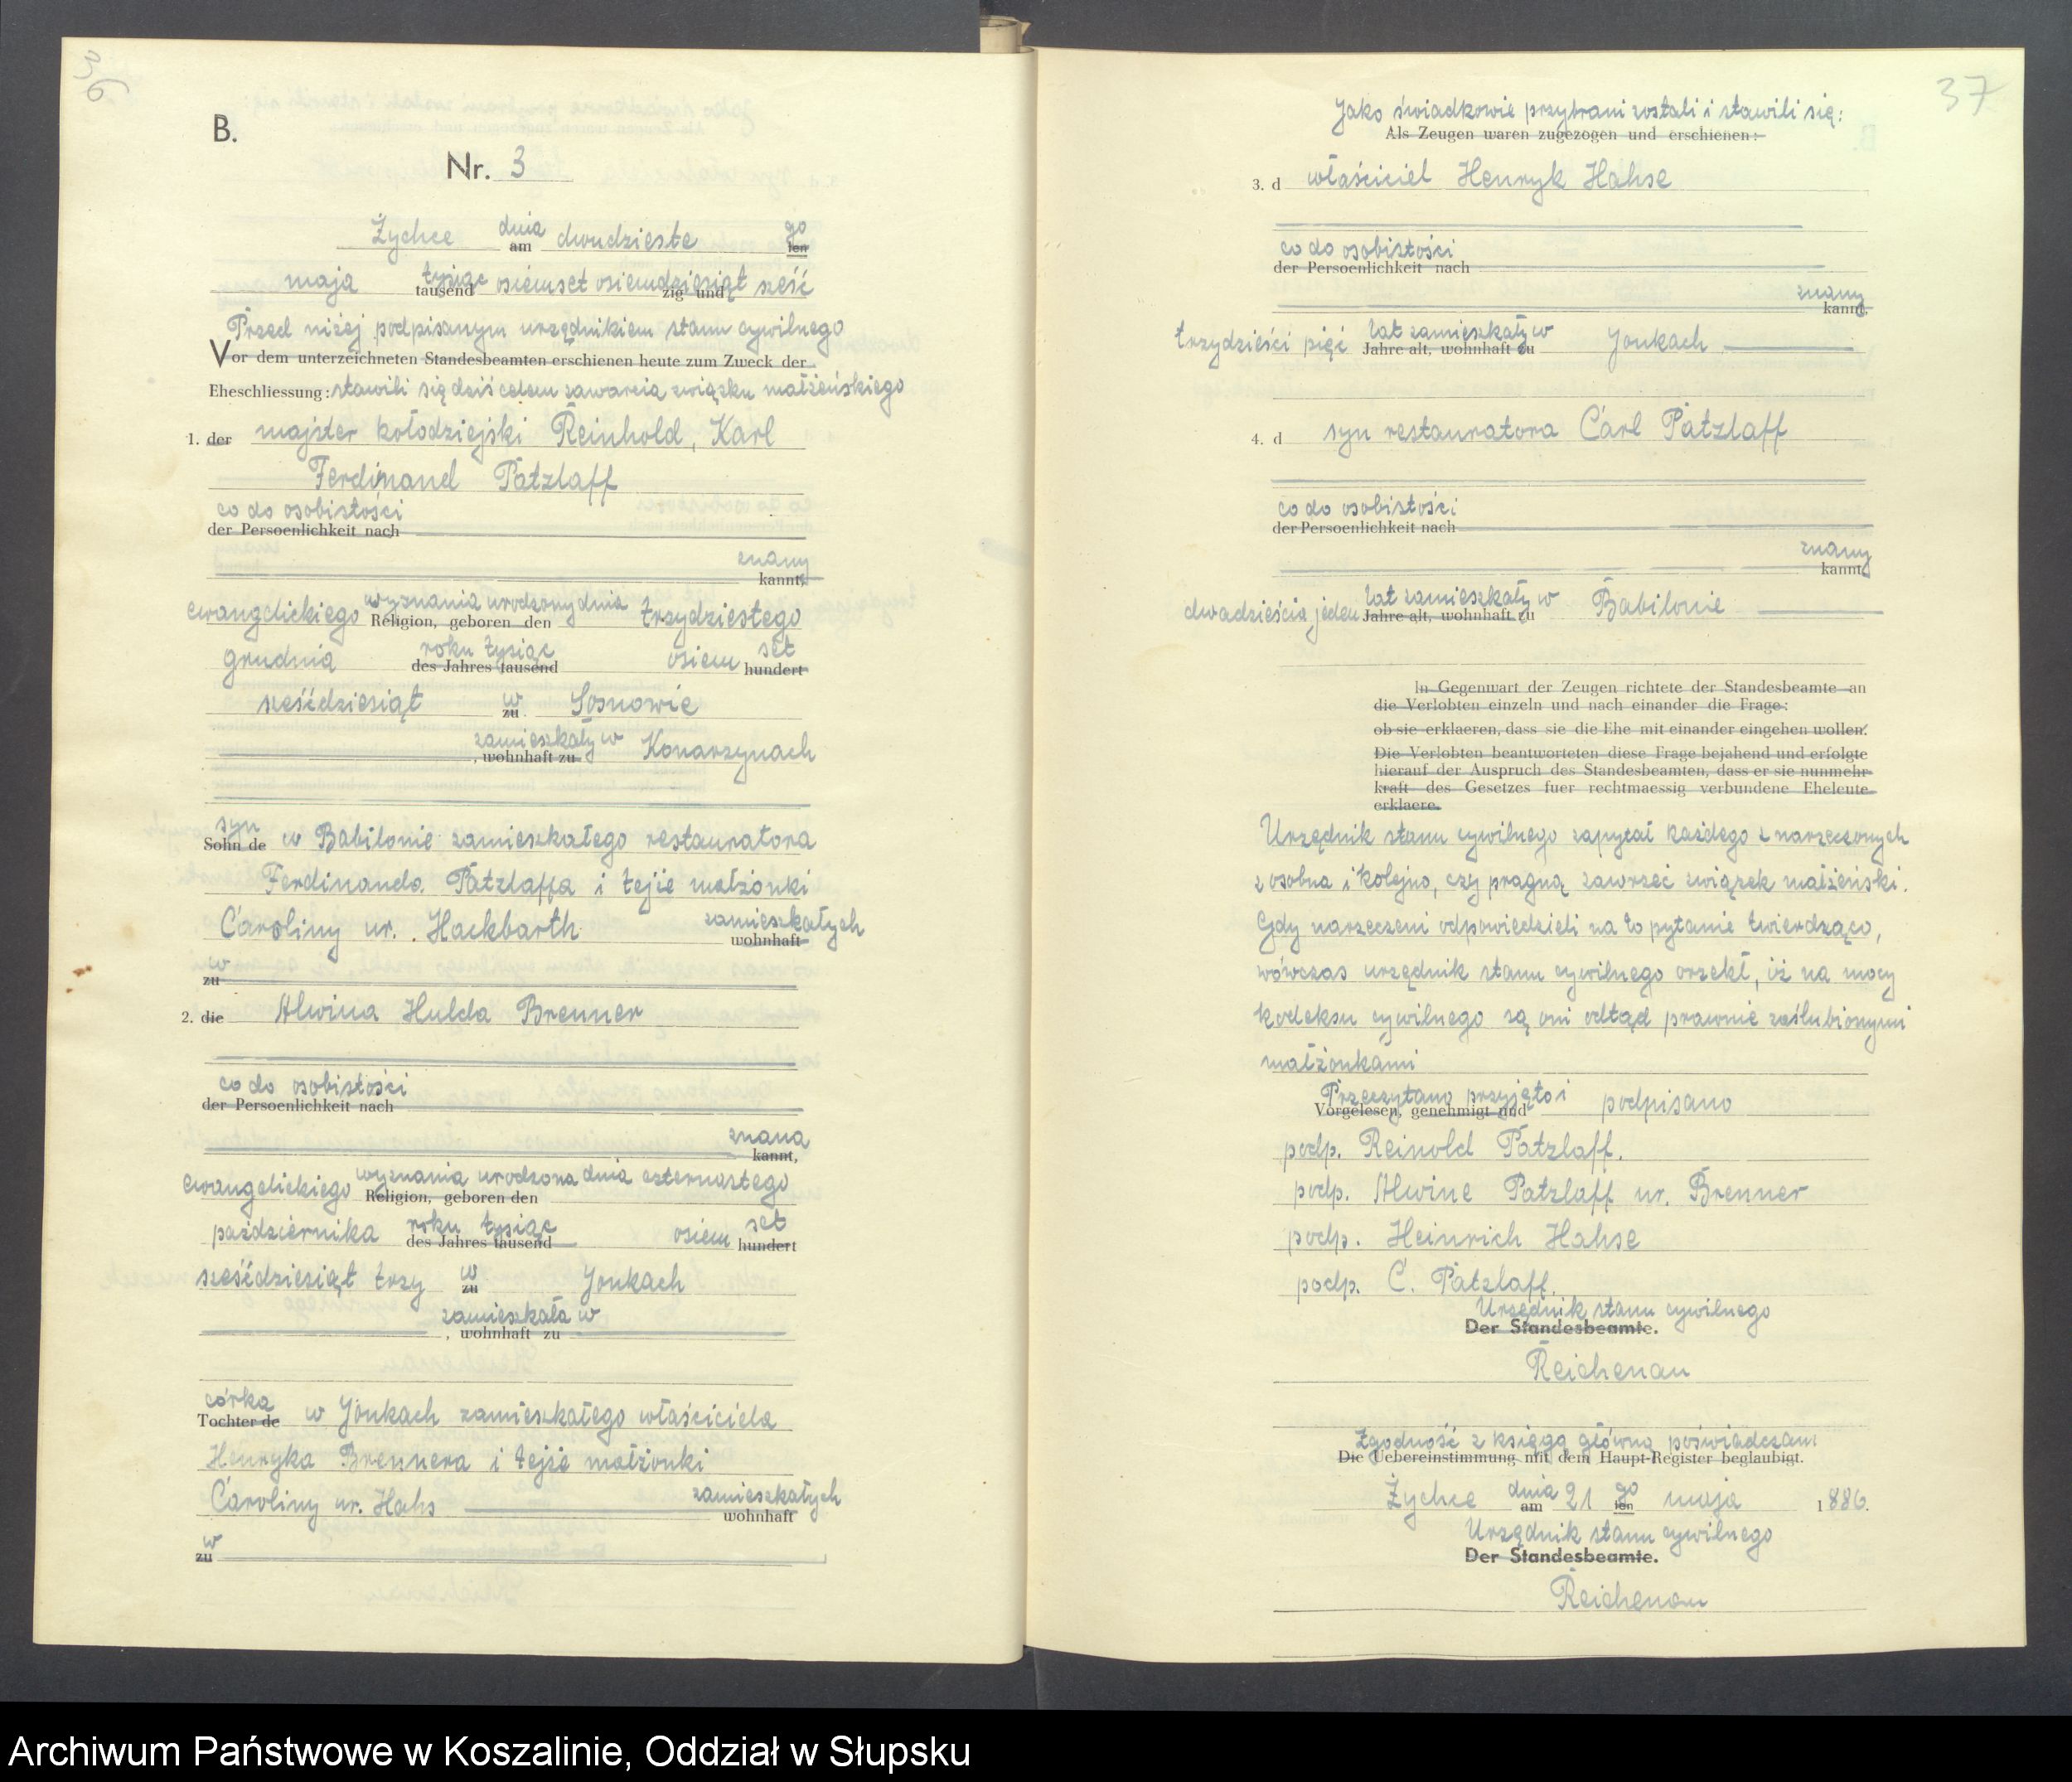 36
B.
Nr. 3
Żychce dnia am dwudzieste go ten
maja tysiąc tausend osiemset osiemdziesiąt zig und sześć
Przed niżej podpisanym urzędnikiem stanu cywilnego
Vor dem unterzeichneten Standesbeamten erschienen heute zum Zweck der
Eheschliessung: stawili się dziś celem zawarcia związku małżeńskiego
1. der majster kołodziejski Reinhold, Karl
Ferdinand Patzlaff
co do osobistości
der Persoenlichkeit nach
znany
kannt,
ewangelickiego wyznania urodzony dnia trzydziestego
Religion, geboren den
grudnia roku tysiąc osiem set
des Jahres tausend hundert
sześćdziesiąt w zu Sosnowie
zamieszkały w Konarzynach
, wohnhaft zu
syn
Sohn de w Babilonie zamieszkałego restauratora
Ferdinanda Patzlaffa i tejże małżonki
Caroliny ur. Hackbarth zamieszkałych
wohnhaft
w
zu
2. die Alwina Hulda Brenner
co do osobistości
der Persoenlichkeit nach
znana
kannt,
ewangelickiego wyznania urodzona dnia czternastego
Religion, geboren den
października roku tysiąc osiem set
des Jahres tausend hundert
sześćdziesiąt trzy w zu Jonkach
zamieszkała w
, wohnhaft zu
córka
Tochter de w Jonkach zamieszkałego właściciela
Henryka Brennera i tejże małżonki
Caroliny ur. Hahs zamieszkałych
wohnhaft
w
zu
37
Jako świadkowie przybrani zostali i stawili się:
Als Zeugen waren zugezogen und erschienen:
3. d właściciel Henryk Hahse
co do osobistości
der Persoenlichkeit nach
znany
kannt,
trzydzieści pięć lat zamieszkały w Jonkach
Jahre alt, wohnhaft zu
4. d syn restauratora Carl Patzlaff
co do osobistości
der Persoenlichkeit nach
znany
kannt,
dwadzieścia jeden lat zamieszkały w Babilonie
Jahre alt, wohnhaft zu
In Gegenwart der Zeugen richtete der Standesbeamte an
die Verlobten einzeln und nach einander die Frage:
ob sie erklaeren, dass sie die Ehe mit einander eingehen wollen.
Die Verlobten beantworteten diese Frage bejahend und erfolgte
hierauf der Auspruch des Standesbeamten, dass er sie nunmehr
kraft des Gesetzes fuer rechtmaessig verbundene Eheleute
erklaere.
Urzędnik stanu cywilnego zapytał każdego z narzeczonych
z osobna i kolejno, czy pragną zawrzeć związek małżeński.
Gdy narzeczeni odpowiedzieli na to pytanie twierdząco,
wówczas urzędnik stanu cywilnego orzekł, iż na mocy
kodeksu cywilnego są oni odtąd prawnie zaślubionymi
małżonkami
Przeczytano przyjęto i podpisano
Vorgelesen, genehmigt und
podp. Reinold Patzlaff.
podp. Alwine Patzlaff ur. Brenner
podp. Heinrich Hahse
podp. C. Patzlaff.
Urzędnik stanu cywilnego
Der Standesbeamte.
Reichenau
Zgodność z księgą główną poświadczam
Die Uebereinstimmung mit dem Haupt-Register beglaubigt.
Żychce dnia am 21 go ten maja 1886.
Urzędnik stanu cywilnego
Der Standesbeamte.
Reichenau
Archiwum Państwowe w Koszalinie, Oddział w Słupsku